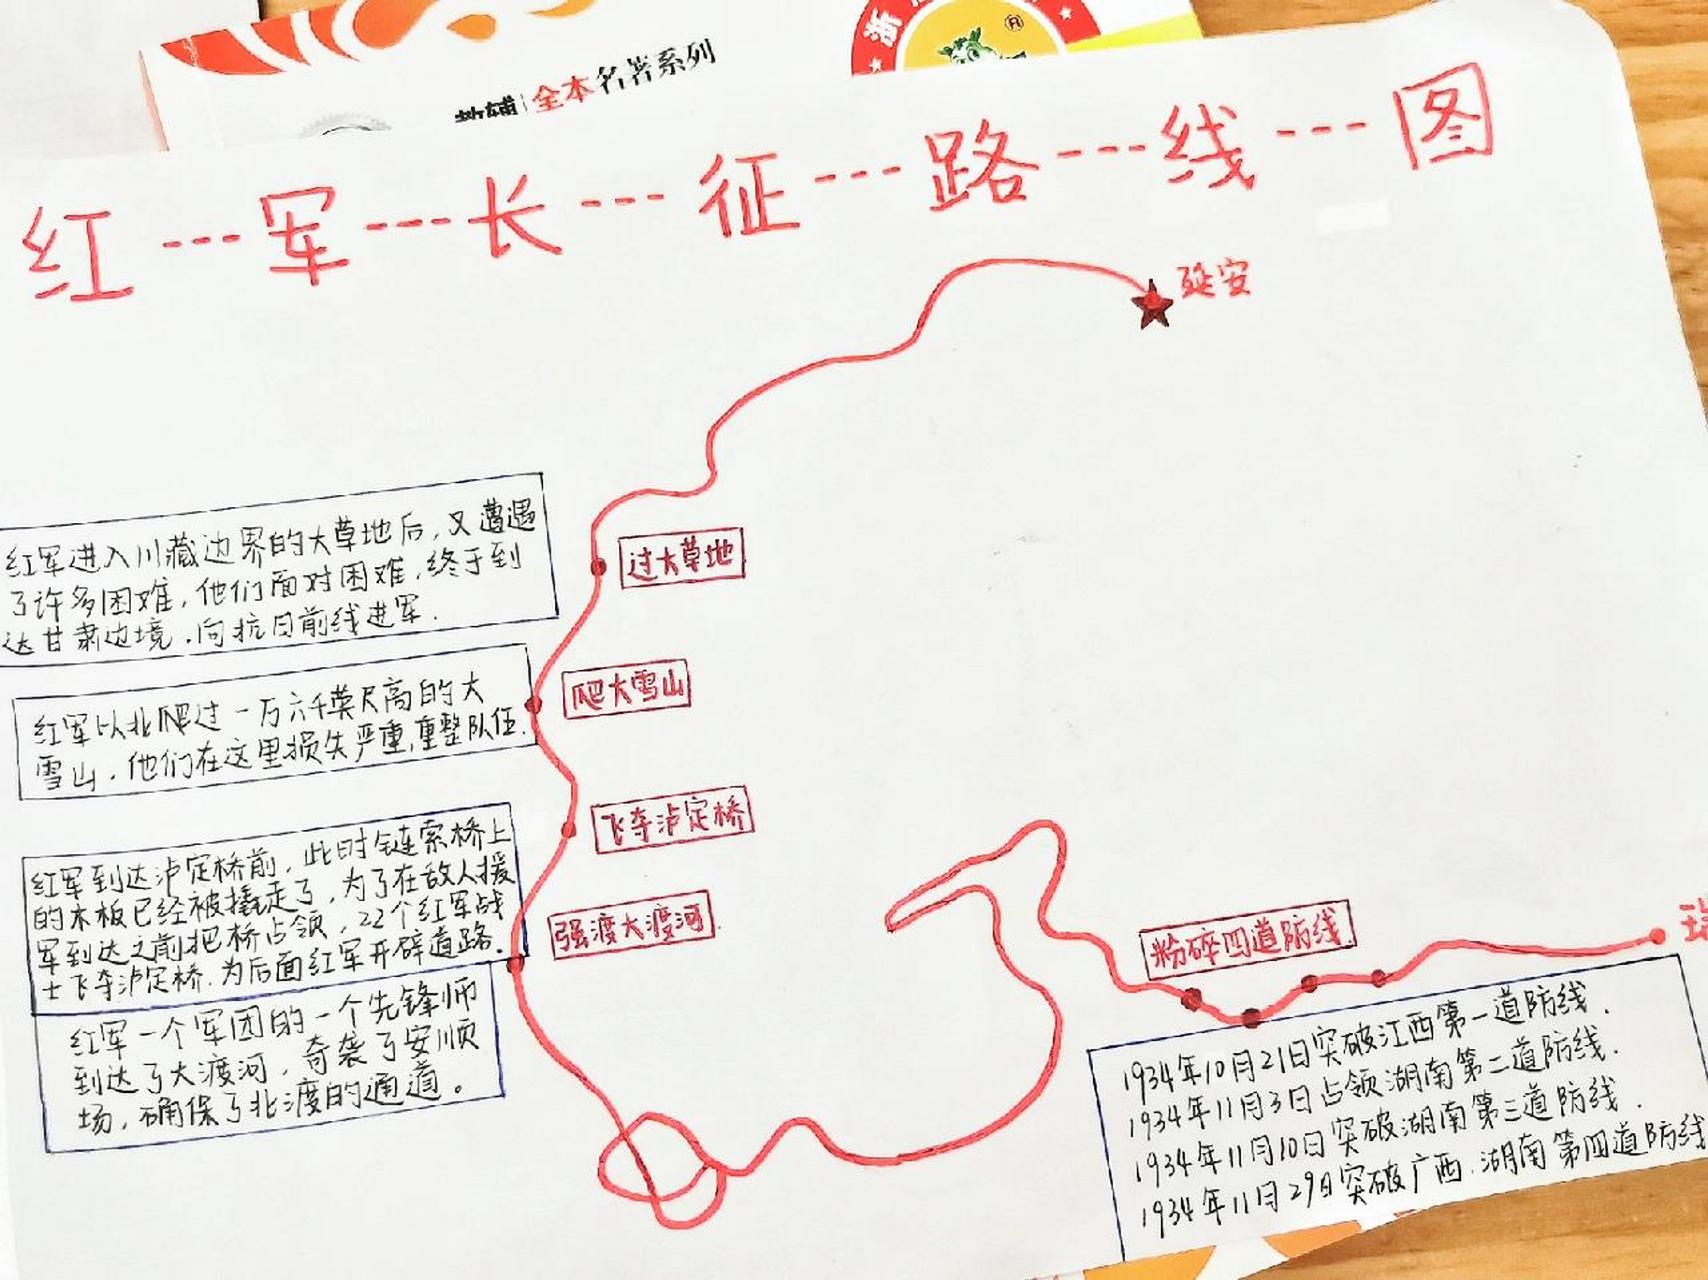 教辅|全本名著系列
浙
红---军---长---征---路---线---图
延安
红军进入川藏边界的大草地后,又遭遇
了许多困难,他们面对困难,终于到
达甘肃边境.向抗日前线进军.
过大草地
红军以北爬过一万六千英尺高的大
雪山.他们在这里损失严重,重整队伍.
爬大雪山
红军到达泸定桥前,此时链索桥上
的木板已经被撬走了,为了在敌人援
军到达之前把桥占领,22个红军战
士飞夺泸定桥.为后面红军开辟道路.
飞夺泸定桥
红军一个军团的一个先锋师
到达了大渡河,奇袭了安顺
场,确保了北渡的通道。
强渡大渡河
粉碎四道防线
瑞
1934年10月21日突破江西第一道防线.
1934年11月3日占领湖南第二道防线.
1934年11月10日突破湖南第三道防线.
1934年11月29日突破广西.湖南第四道防线